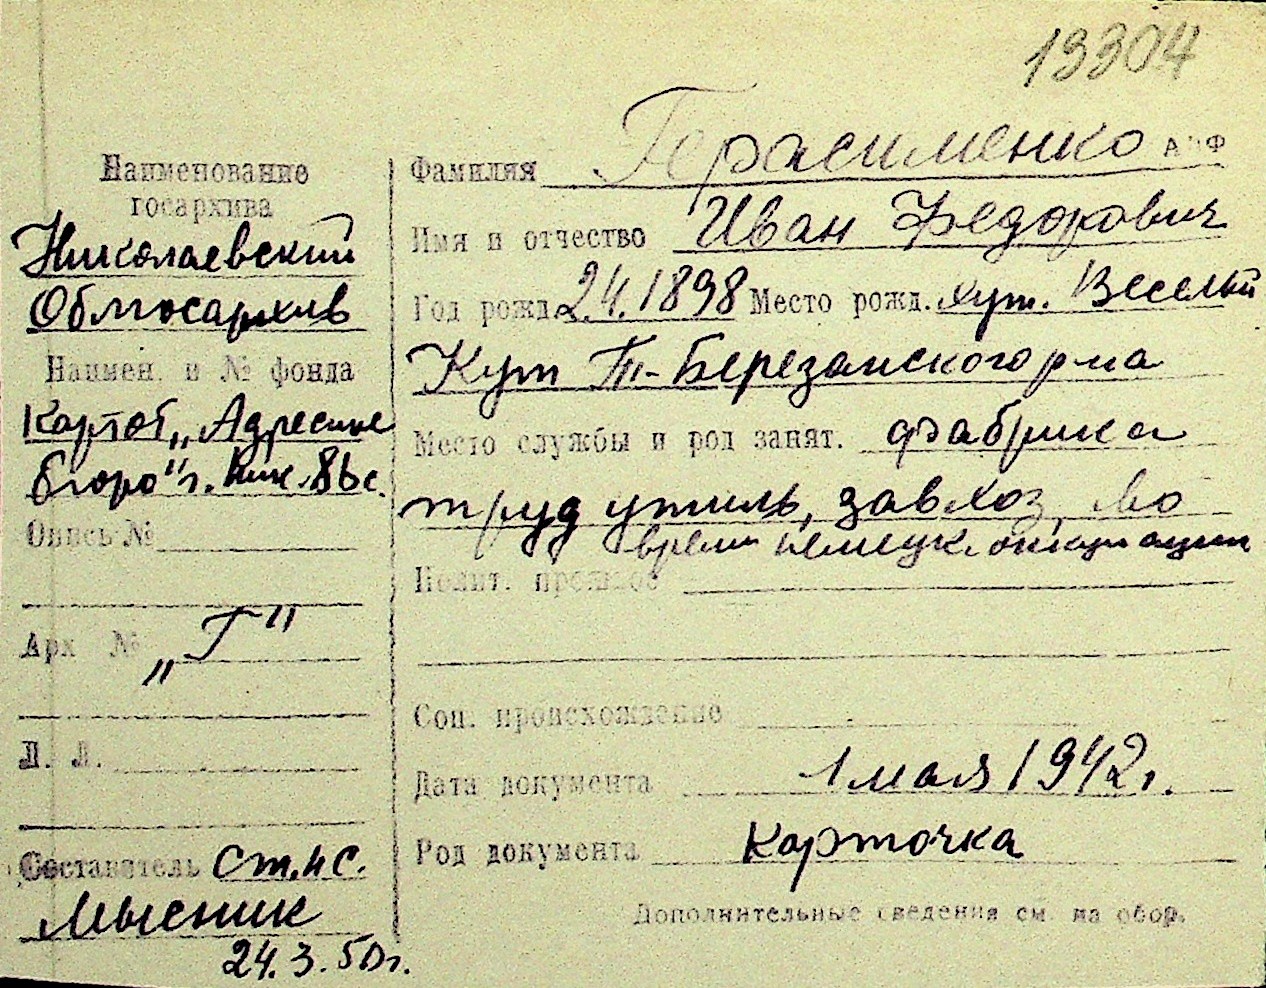 13304
Наименование
госархива
Николаевский
Облгосархив
Наимен. и № фонда
Картот. „Адресное
бюро" г. Ник.
Опись №
Арх №
„Г"
Л. Л.
Составитель ст. н с.
Мысник
24.3.50 г.
Фамилия Герасименко
Имя и отчество Иван Федорович
Год рожд. 2.4.1898 Место рожд. хут. Веселый
Кут Т-Березанского р-на
Место службы и род занят. фабрика
труд утиль, завхоз, во
время немецк. оккупации
Полит. прошлое
Соц. происхождение
Дата документа 1 мая 1942 г.
Род документа Карточка
Дополнительные сведения см. на обор.